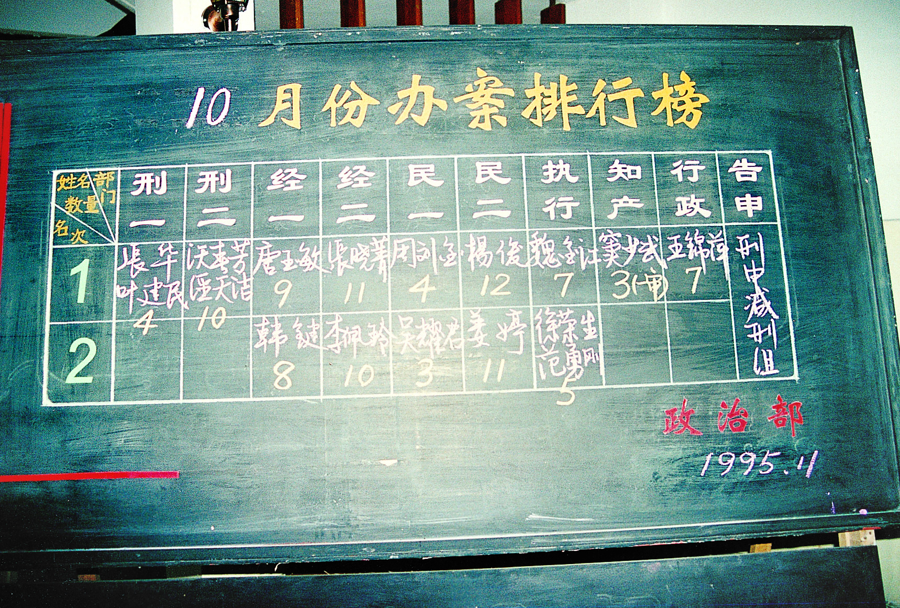 10月份办案排行榜
姓名 部门 数量 名次 刑一 刑二 经一 经二 民一 民二 执行 知产 行政 告申
1 张华 叶建民 4 沃春芳 区天洁 10 唐玉敏 9 张晓菁 11 周刘金 4 杨俊 12 魏金江 7 窦少武 3(一审) 王锦萍 7 刑申减刑组
2 韩键 8 李佩玲 10 吴耀君 3 姜婷 11 徐荣生 范勇刚 5
政治部
1995.11